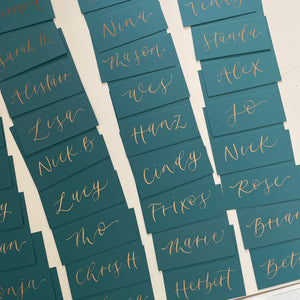 Sarah M
Alistair
Lisa
Nick B
Lucy
Mo
Chris.H
Nina
Mason
Wes
Hanz
Cindy
Frixos
Marie
Herbert
Standa
Alex
Jo
Nick
Rose